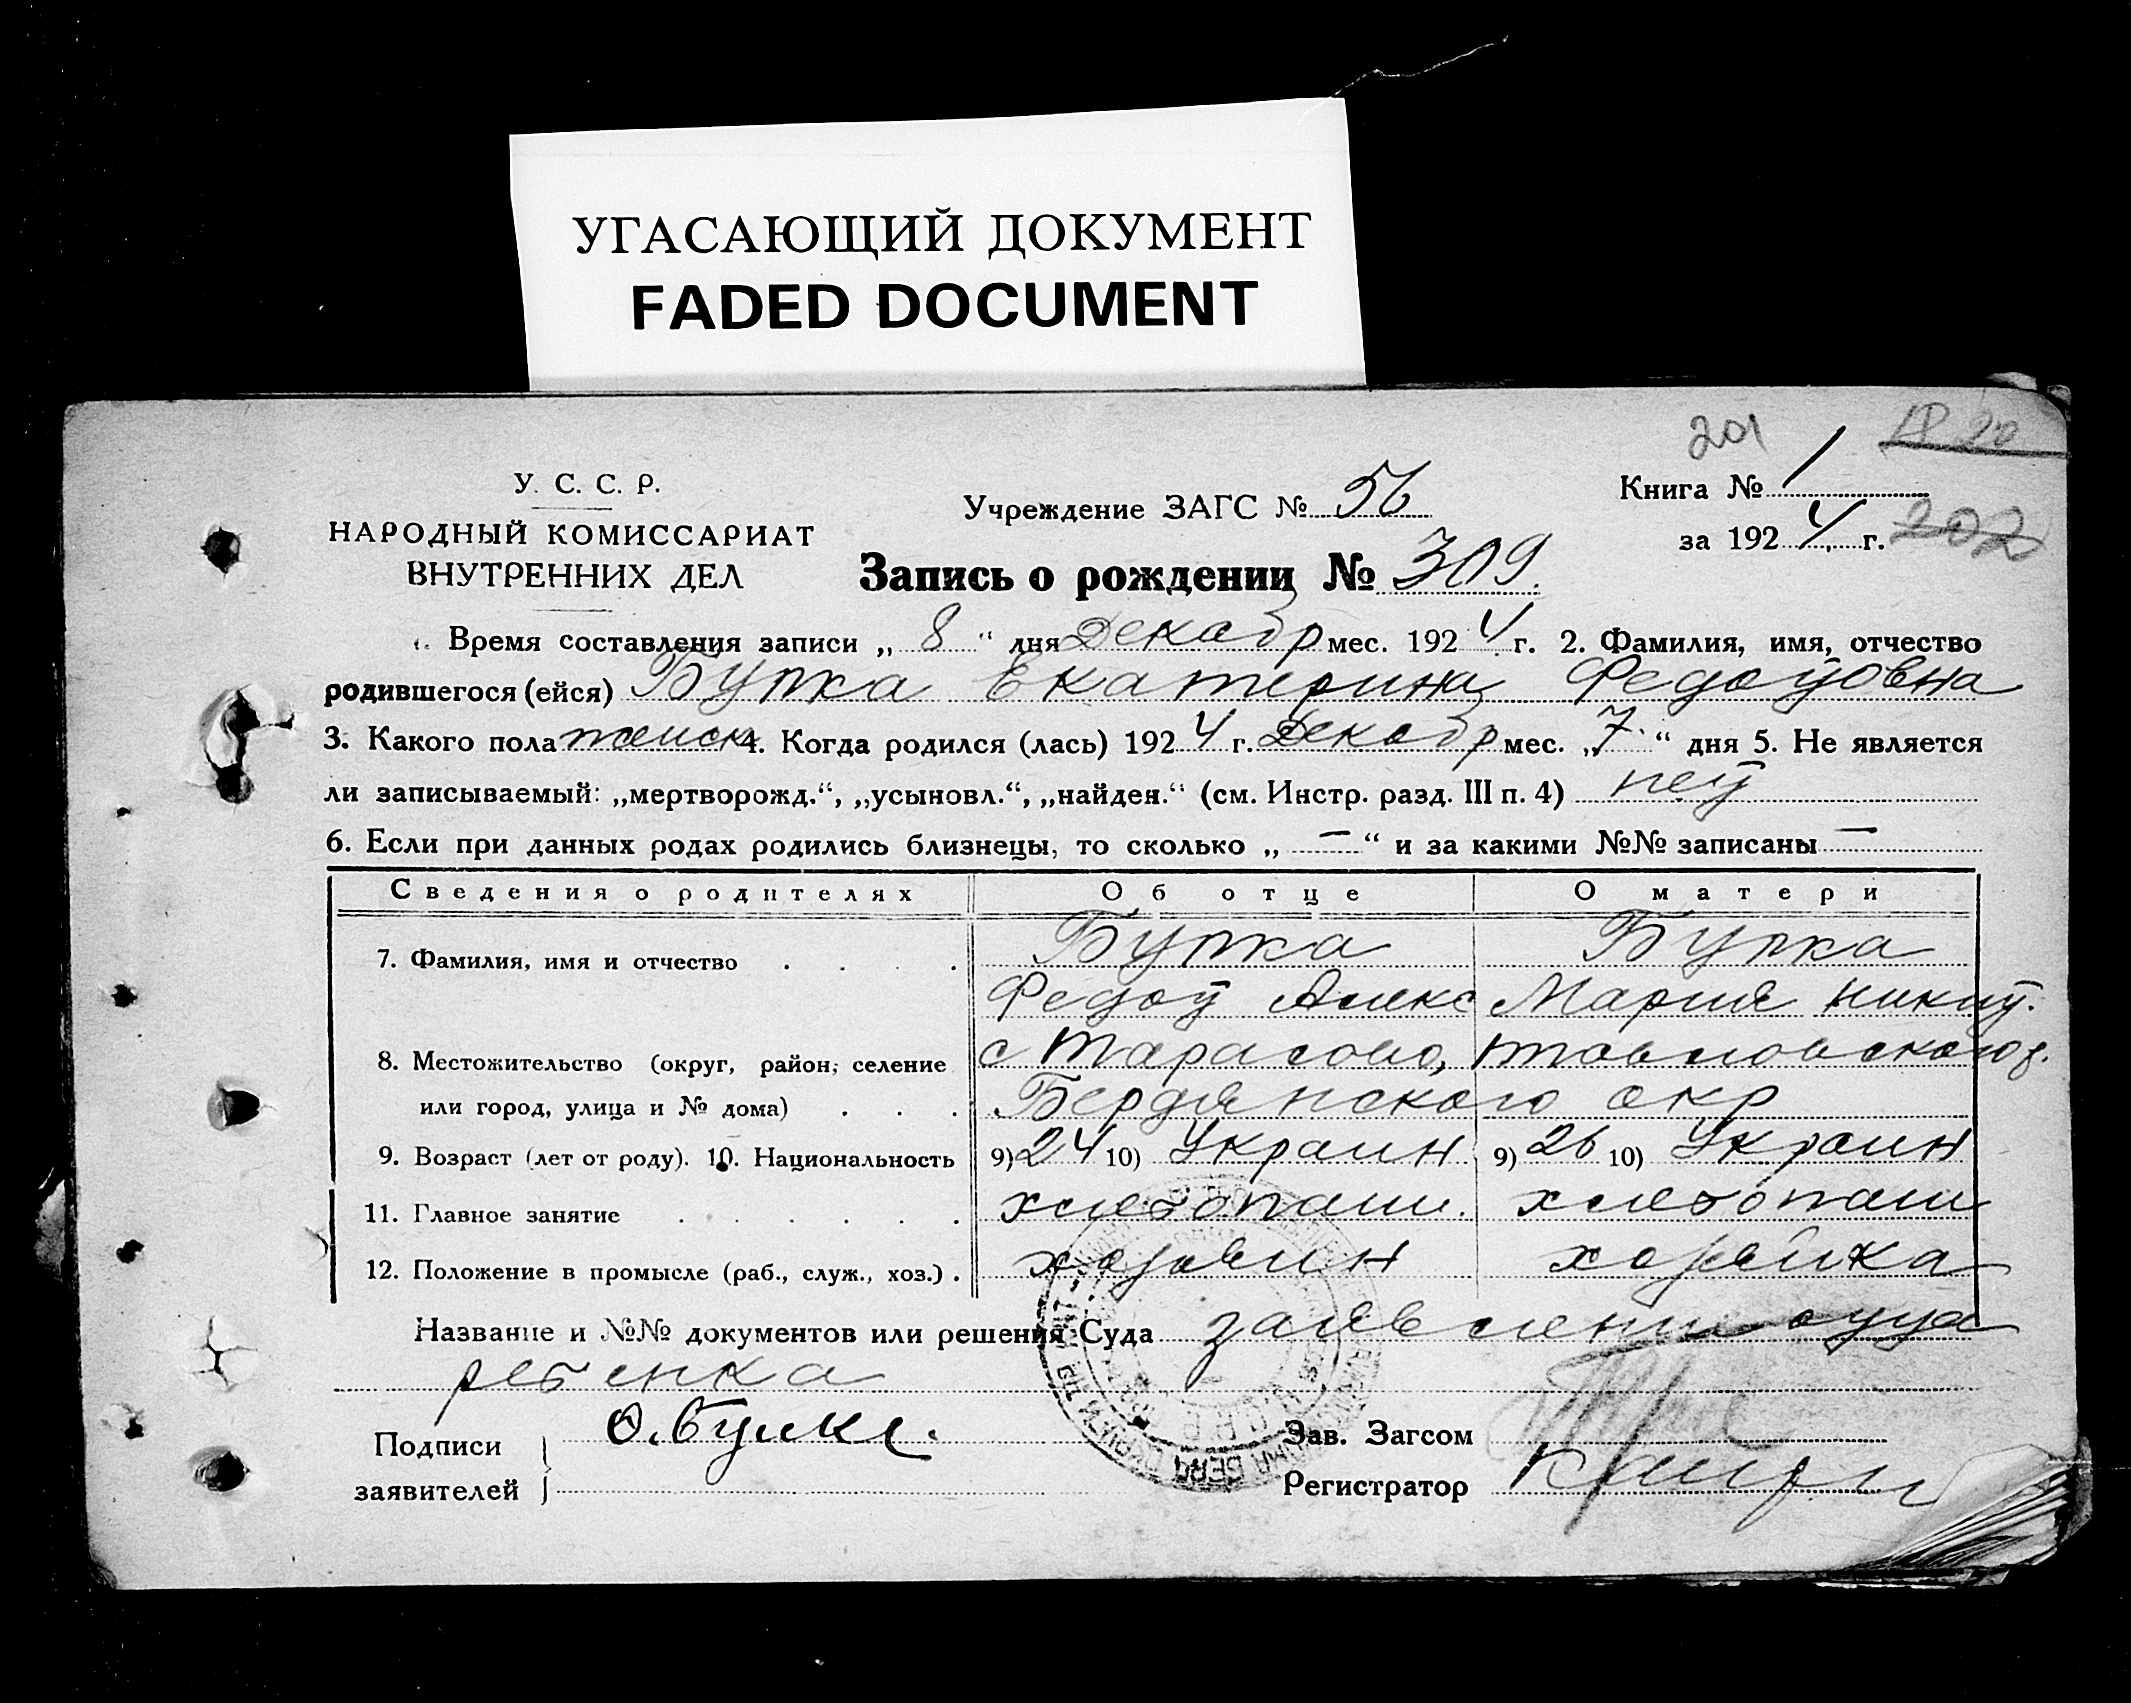 УГАСАЮЩИЙ ДОКУМЕНТ
FADED DOCUMENT
201
У. С. С. Р.
НАРОДНЫЙ КОМИССАРИАТ
ВНУТРЕННИХ ДЕЛ
Учреждение ЗАГС № 56
Книга № 1
за 1924 г. 202
Запись о рождении № 309.
Время составления записи „ 8 “ дня Декабр мес. 1924 г. 2. Фамилия, имя, отчество
родившегося (ейся) Бупка Екатерина Федотовна
3. Какого пола женск 4. Когда родился (лась) 1924 г. Декабр мес. „ 7 “ дня 5. Не является
ли записываемый: „мертворожд.“, „усыновл.“, „найден.“ (см. Инстр. разд. III п. 4) нет
6. Если при данных родах родились близнецы, то сколько „ — “ и за какими №№ записаны —
Сведения о родителях Об отце О матери
7. Фамилия, имя и отчество Бупка Бупка
Федот Алекс Мария Никит.
8. Местожительство (округ, район, селение с Тарасово,
или город, улица и № дома) Бердянского окр
9. Возраст (лет от роду). 10. Национальность 9) 24 10) Украин 9) 26 10) Украин
11. Главное занятие хлебопаш. хлебопаш
12. Положение в промысле (раб., служ., хоз.) хозяин хозяйка
Название и №№ документов или решения Суда заявление отца
ребенка
Подписи
заявителей
Зав. Загсом
Регистратор